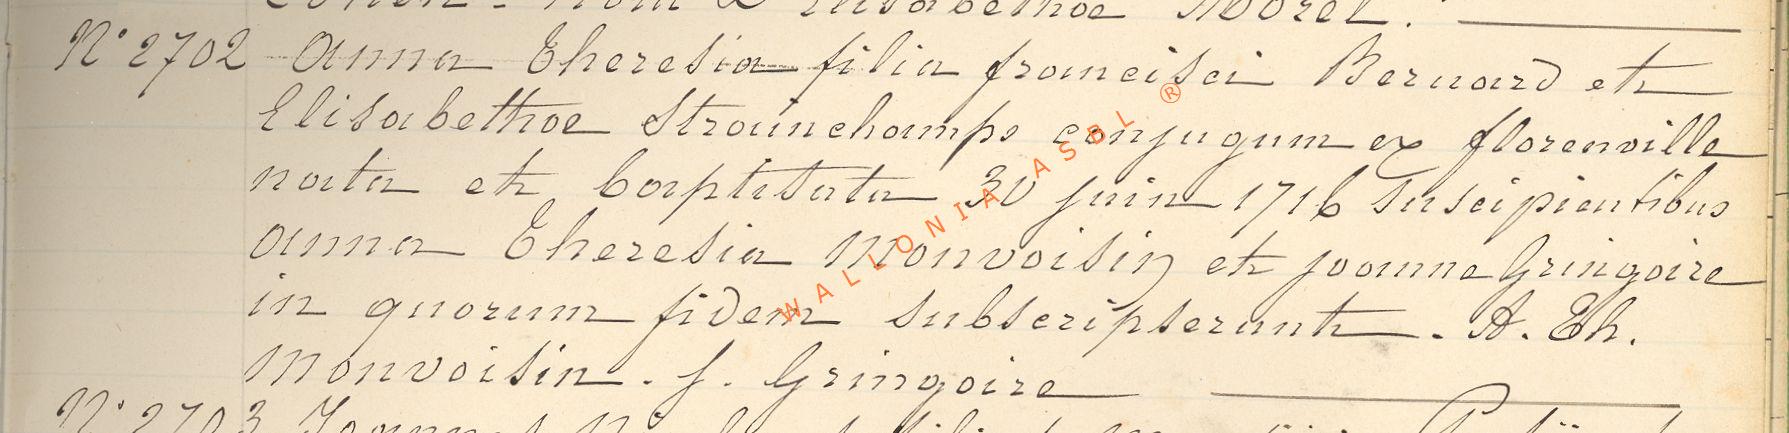 Elisabethoe Morel.
N° 2702 Anna Theresia filia francisci Bernard et
Elisabethoe Strainchamps conjugum ex florenville
nata et baptisata 30 juin 1716 suscipientibus
anna Theresia Monvoisin et joanne Gringoire
in quorum fidem subscripserunt. A. Th.
Monvoisin. J. Gringoire
N° 2703
WALLONIA ASBL ®